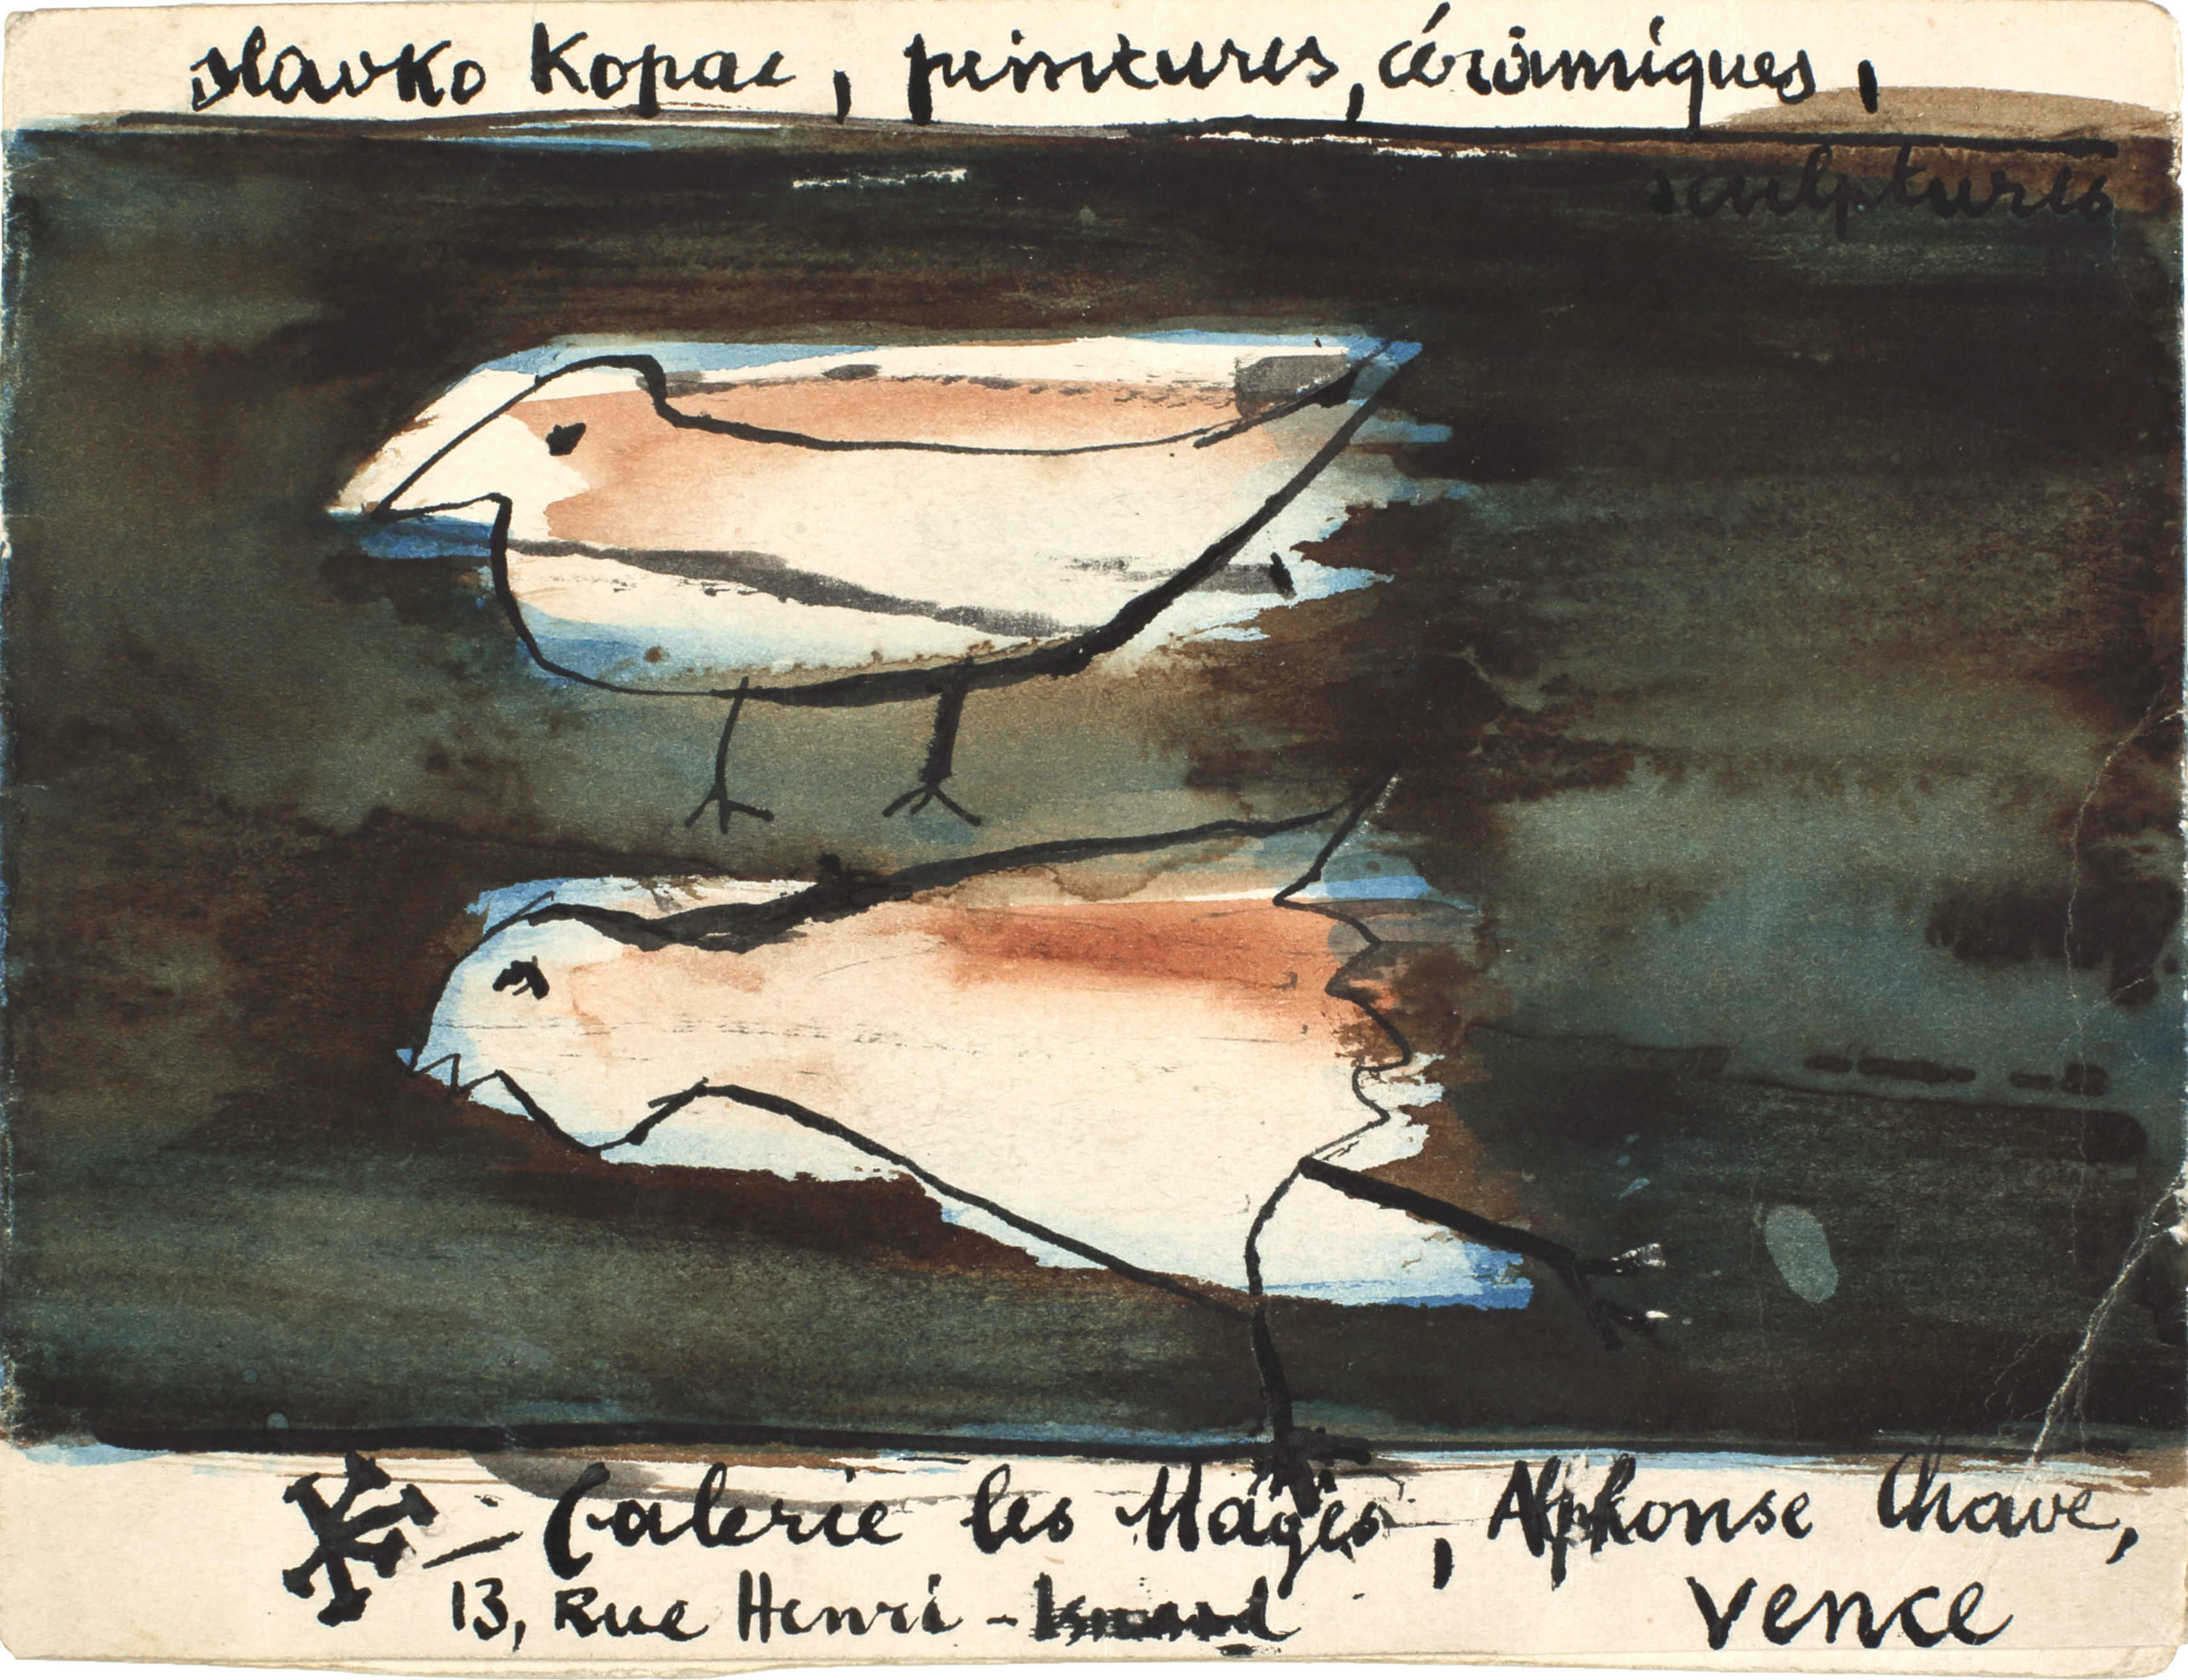 slavko Kopac, peintures, céramiques,
sculptures
Galerie les Mages, Alphonse Chave,
13, Rue Henri -
Vence